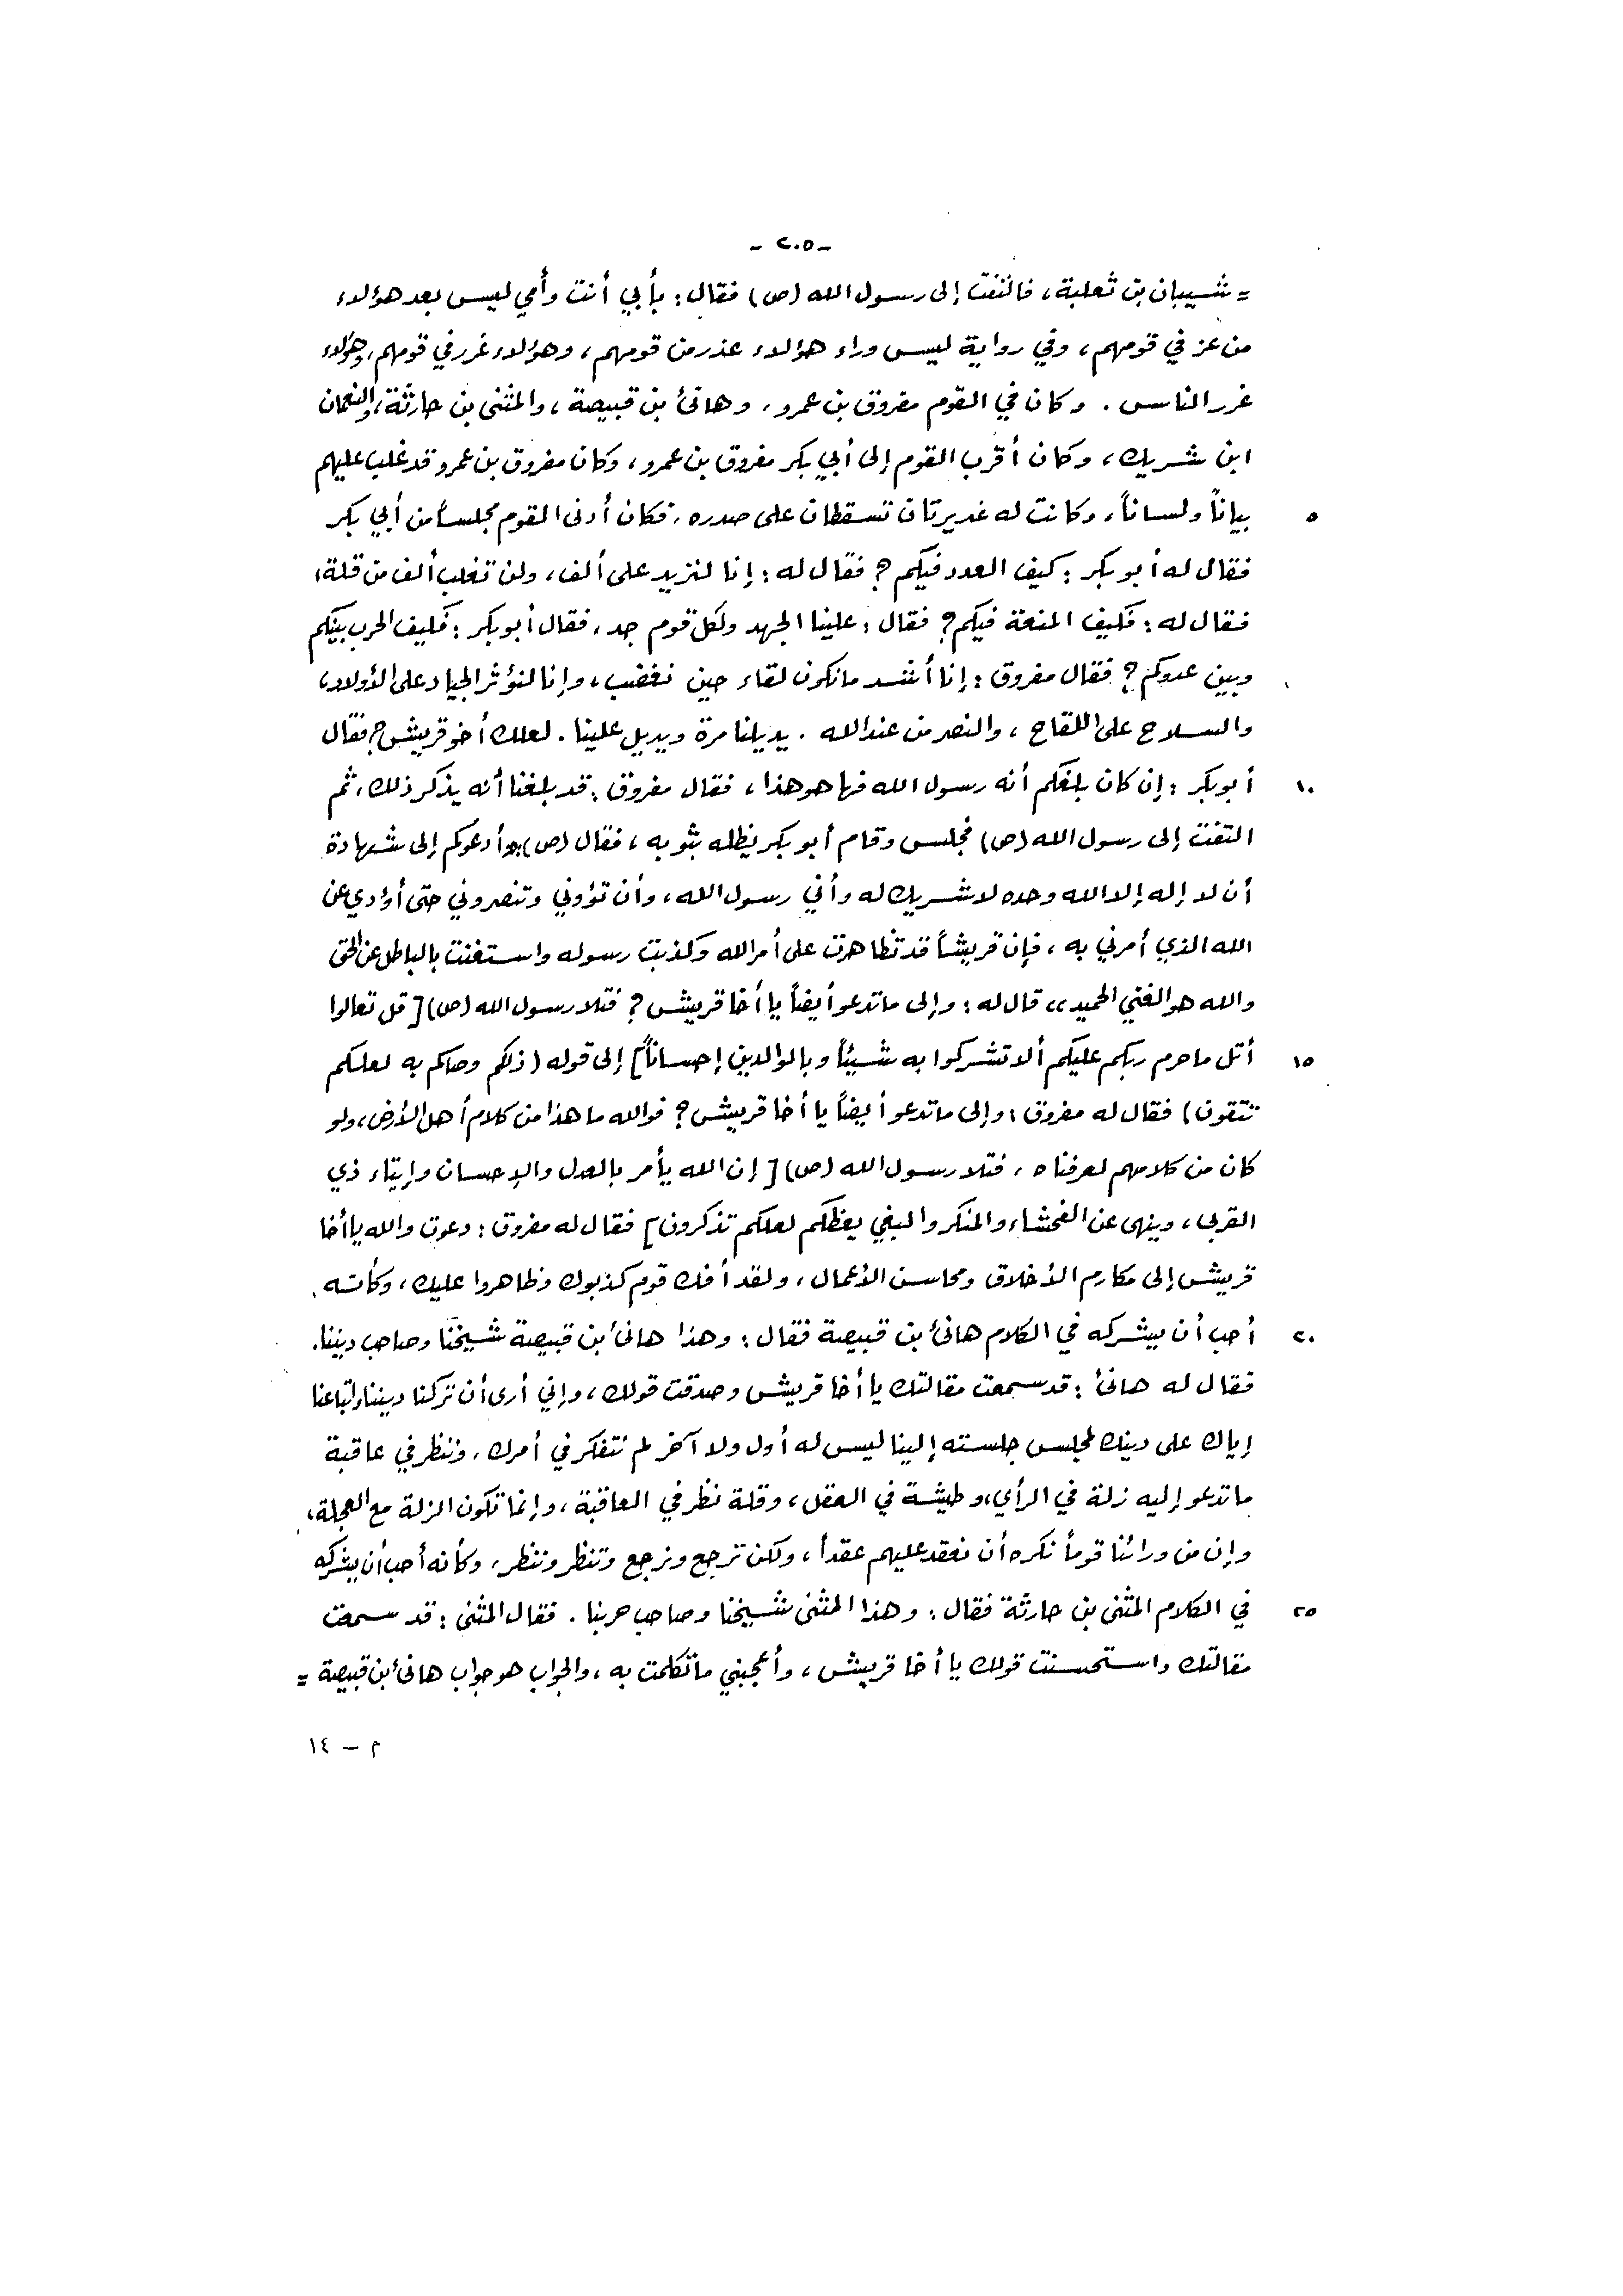 - ٢٠٥ -
= شيبان بن ثعلبة، فالتفت إلى رسول الله (ص) فقال: بأبي أنت وأمي ليس بعد هؤلاء
من عز في قومهم، وفي رواية ليس وراء هؤلاء عذر من قومهم، وهؤلاء غرر في قومهم، وهؤلاء
غرر الناس. وكان في القوم مفروق بن عمرو، وهانئ بن قبيصة، والمثنى بن حارثة، والنعمان
ابن شريك، وكان أقرب القوم إلى أبي بكر مفروق بن عمرو، وكان مفروق بن عمرو قد غلب عليهم
٥ بياناً ولساناً، وكانت له غديرتان تسقطان على صدره، فكان أدنى القوم مجلساً من أبي بكر
فقال له أبو بكر: كيف العدد فيكم؟ فقال له: إنا لنزيد على ألف، ولن تغلب ألف من قلة،
فقال له: فكيف المنعة فيكم؟ فقال: علينا الجهد ولكل قوم جد، فقال أبو بكر: فكيف الحرب بينكم
وبين عدوكم؟ فقال مفروق: إنا أشد ما نكون لقاء حين نغضب، وإنا لنؤثر الجياد على الأولاد،
والسلاح على اللقاح، والنصر من عند الله. يديلنا مرة ويديل علينا. لعلك أخو قريش؟ فقال
١٠ أبو بكر: إن كان بلغكم أنه رسول الله فها هو هذا، فقال مفروق: قد بلغنا أنه يذكر ذلك، ثم
التفت إلى رسول الله (ص) فجلس وقام أبو بكر يظله بثوبه، فقال (ص) «أدعوكم إلى شهادة
أن لا إله إلا الله وحده لا شريك له وأني رسول الله، وأن تؤوني وتنصروني حتى أؤدي عن
الله الذي أمرني به، فإن قريشاً قد تظاهرت على أمر الله وكذبت رسوله واستغنت بالباطل عن الحق
والله هو الغني الحميد،، قال له: وإلى ما تدعو أيضاً يا أخا قريش؟ فتلا رسول الله (ص) [قل تعالوا
١٥ أتل ما حرم ربكم عليكم ألا تشركوا به شيئاً وبالوالدين إحساناً] إلى قوله (ذلكم وصاكم به لعلكم
تتقون) فقال له مفروق: وإلى ما تدعو أيضاً يا أخا قريش؟ فوالله ما هذا من كلام أهل الأرض، ولو
كان من كلامهم لعرفناه، فتلا رسول الله (ص) [إن الله يأمر بالعدل والإحسان وإيتاء ذي
القربى، وينهى عن الفحشاء والمنكر والبغي يعظكم لعلكم تذكرون] فقال له مفروق: دعوت والله يا أخا
قريش إلى مكارم الأخلاق ومحاسن الأعمال، ولقد أفك قوم كذبوك وظاهروا عليك، وكأنه
٢٠ أحب أن يشركه في الكلام هانئ بن قبيصة فقال: وهذا هانئ بن قبيصة شيخنا وصاحب ديننا.
فقال له هانئ: قد سمعت مقالتك يا أخا قريش وصدقت قولك، وإني أرى أن تركنا ديننا واتباعنا
إياك على دينك لمجلس جلسته إلينا ليس له أول ولا آخر لم نتفكر في أمرك، وننظر في عاقبة
ما تدعو إليه زلة في الرأي، وطيشة في العقل، وقلة نظر في العاقبة، وإنما تكون الزلة مع العجلة،
وإن من ورائنا قوماً نكره أن نعقد عليهم عقداً، ولكن ترجع ونرجع وتنظر وننظر، وكأنه أحب أن يشركه
٢٥ في الكلام المثنى بن حارثة فقال: وهذا المثنى شيخنا وصاحب حربنا. فقال المثنى: قد سمعت
مقالتك واستحسنت قولك يا أخا قريش، وأعجبني ما تكلمت به، والجواب هو جواب هانئ بن قبيصة =
م - ١٤